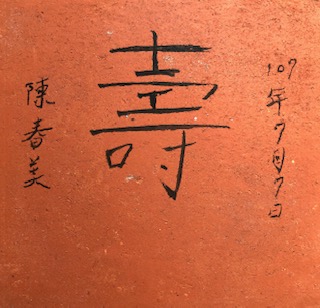 107年7月7日
壽
陳春美